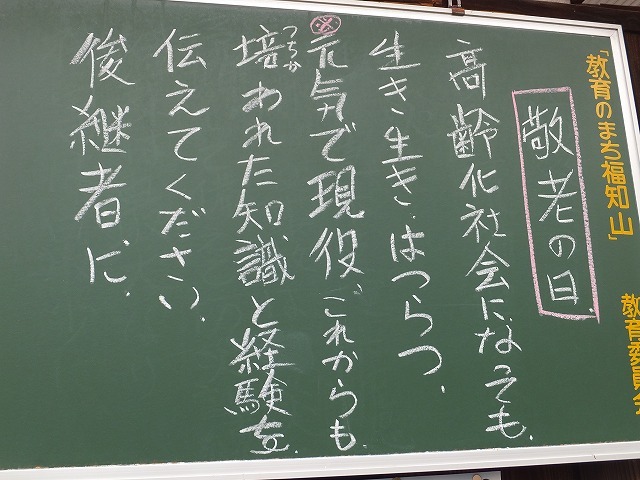 「教育のまち福知山」
教育委員会
敬老の日.
高齢化社会になっても.
生き生き.はつらつ.
※
元気で現役.これからも.
つちか
培われた知識と経験を.
伝えてください.
後継者に.